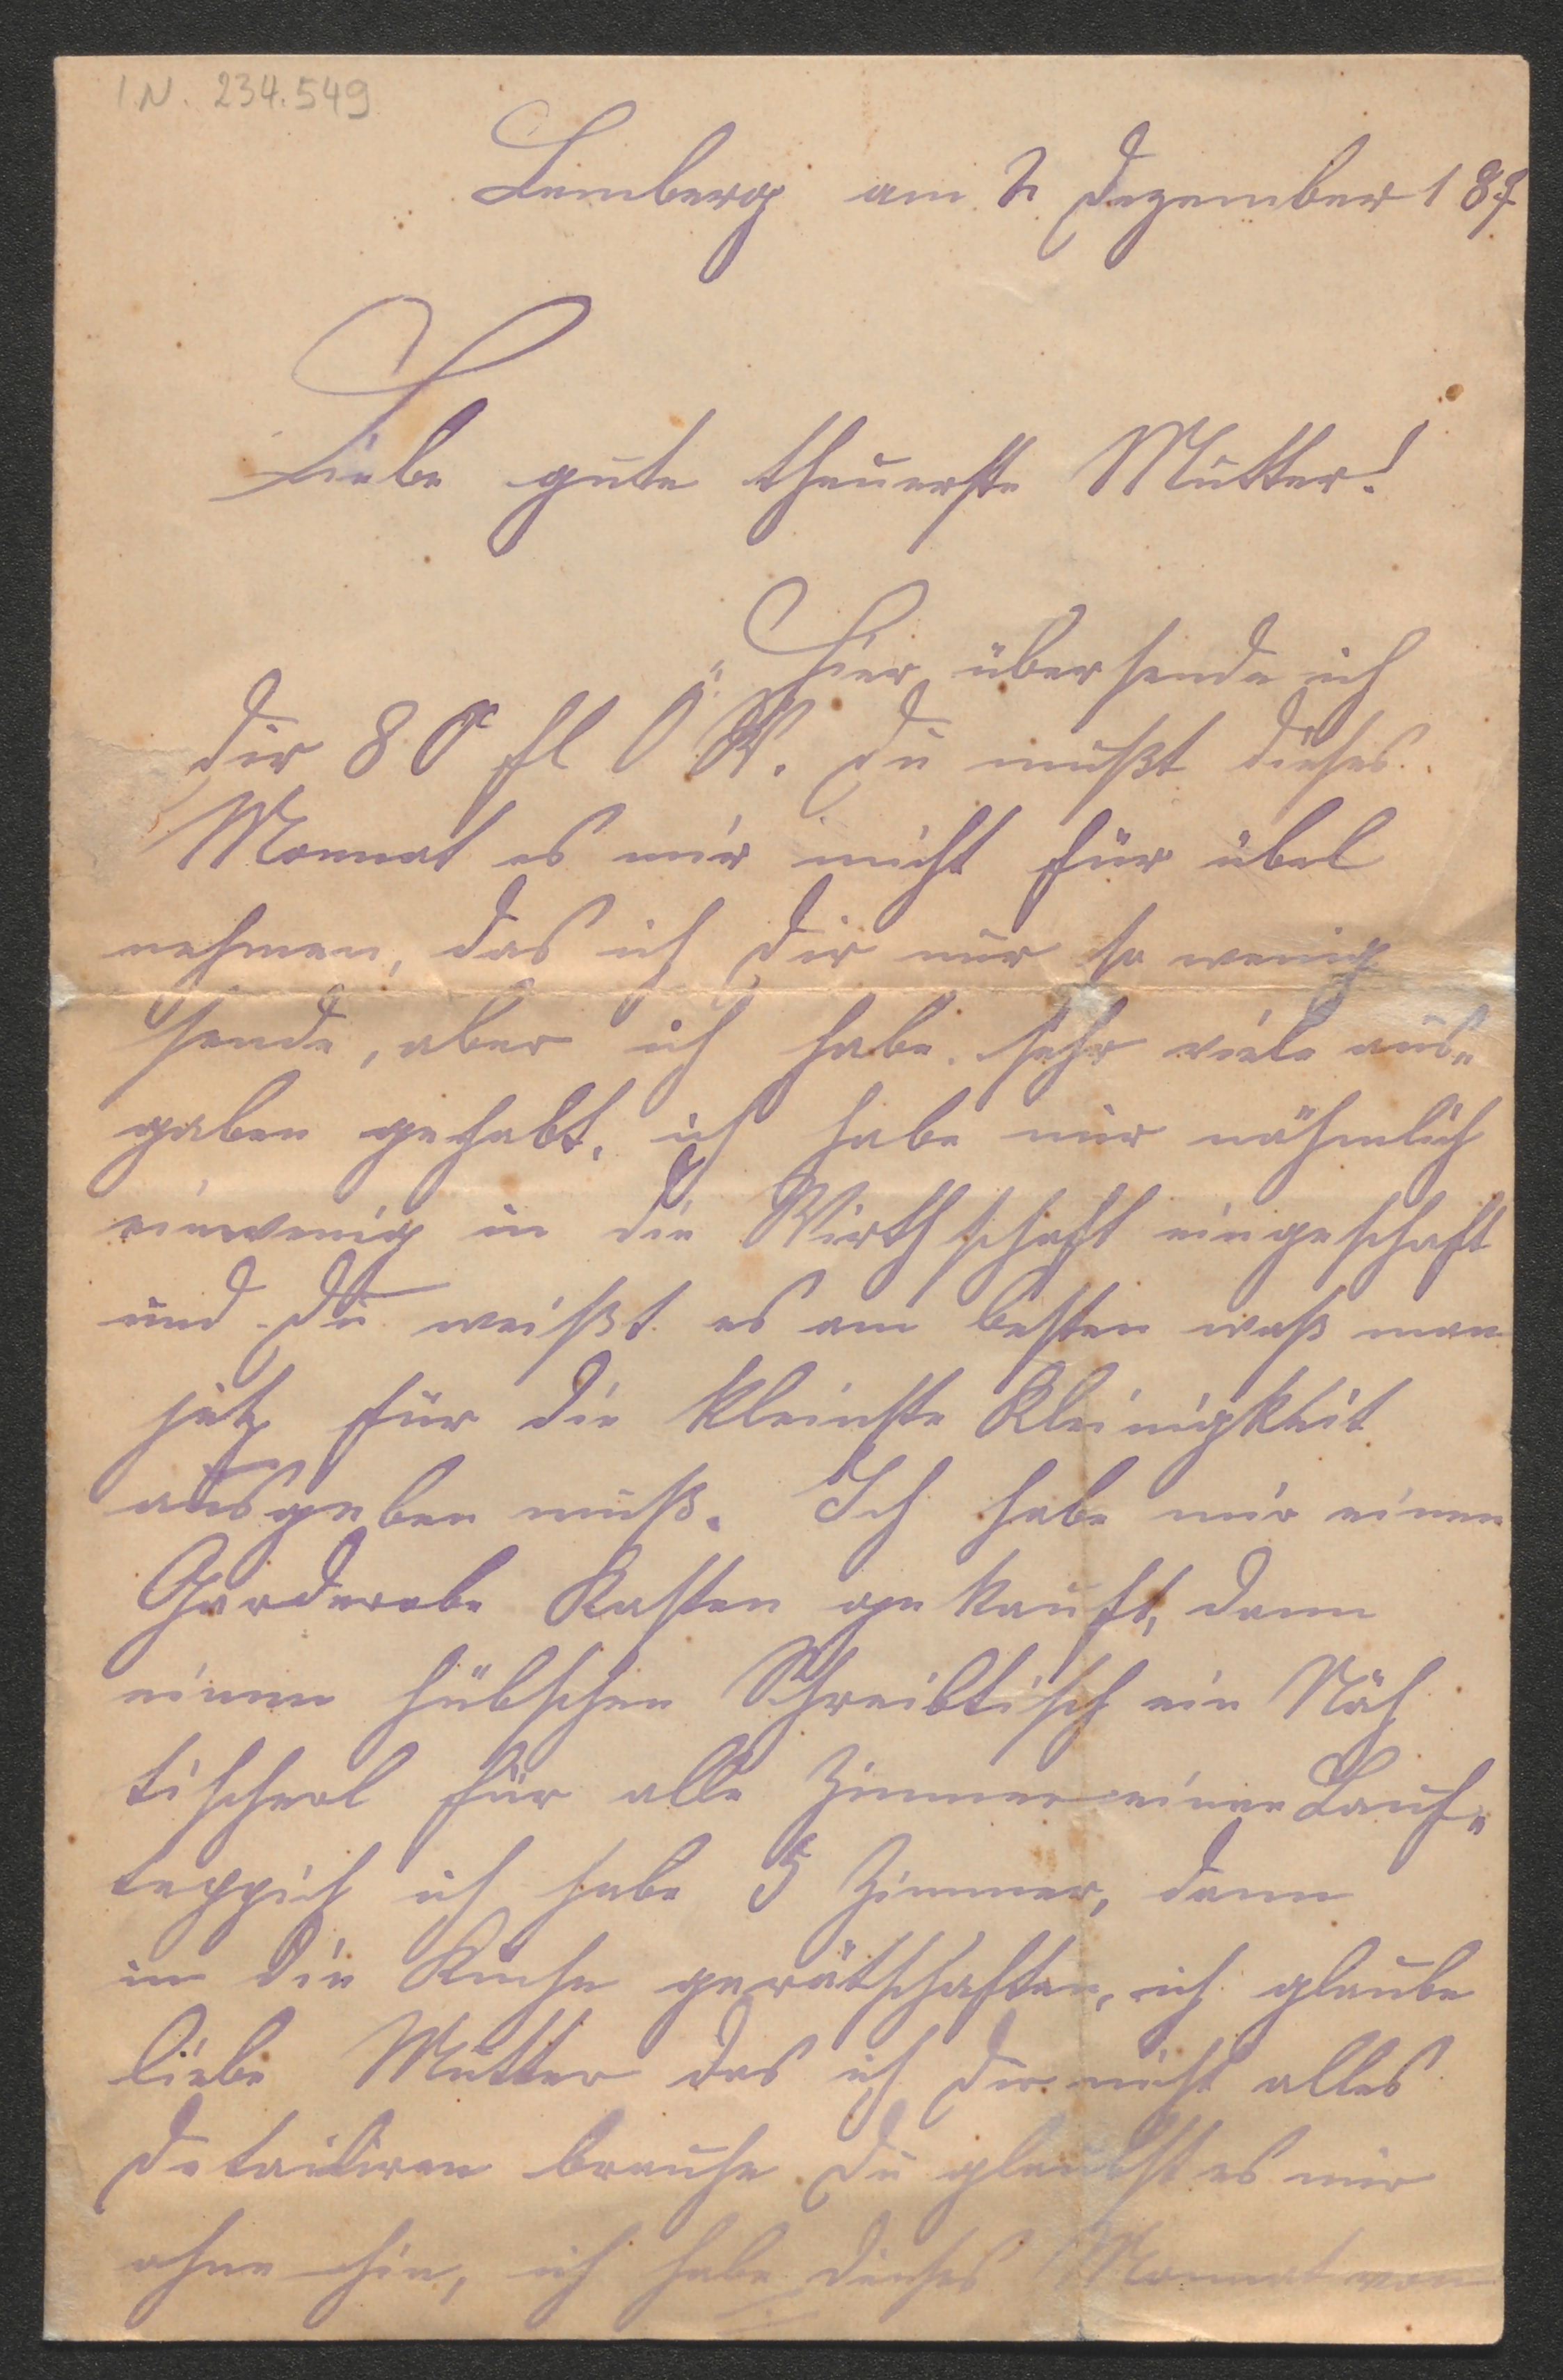 I.N. 234.549
Lemberg am 2 Dezember 187
Liebe gute theuerste Mutter!
Hier übersende ich
Dir 80 fl Ö W. Du mußt dieses
Monnat es mir nicht für übel
nehmen, das ich Dir nur so wenig
sende, aber ich habe sehr viele aus„
gaben gehabt, ich habe mir nähmlich
einwenig in die Wirthschaft eingeschaft
und Du weißt es am besten waß man
jetz für die kleinste Kleinigkeit
ausgeben muß. Ich habe mir einen
Garderobe Kasten gekauft, dann
einen hübschen Schreibtisch ein Näh
tischerl für alle Zimmer einen Lauf„
teppich ich habe 5 Zimmer, dann
in die Küche gerätschaften, ich glaube
liebe Mutter das ich Dir nicht alles
Detailiren brauche Du glaubst es mir
ohne hin, ich habe dieses Monnat von